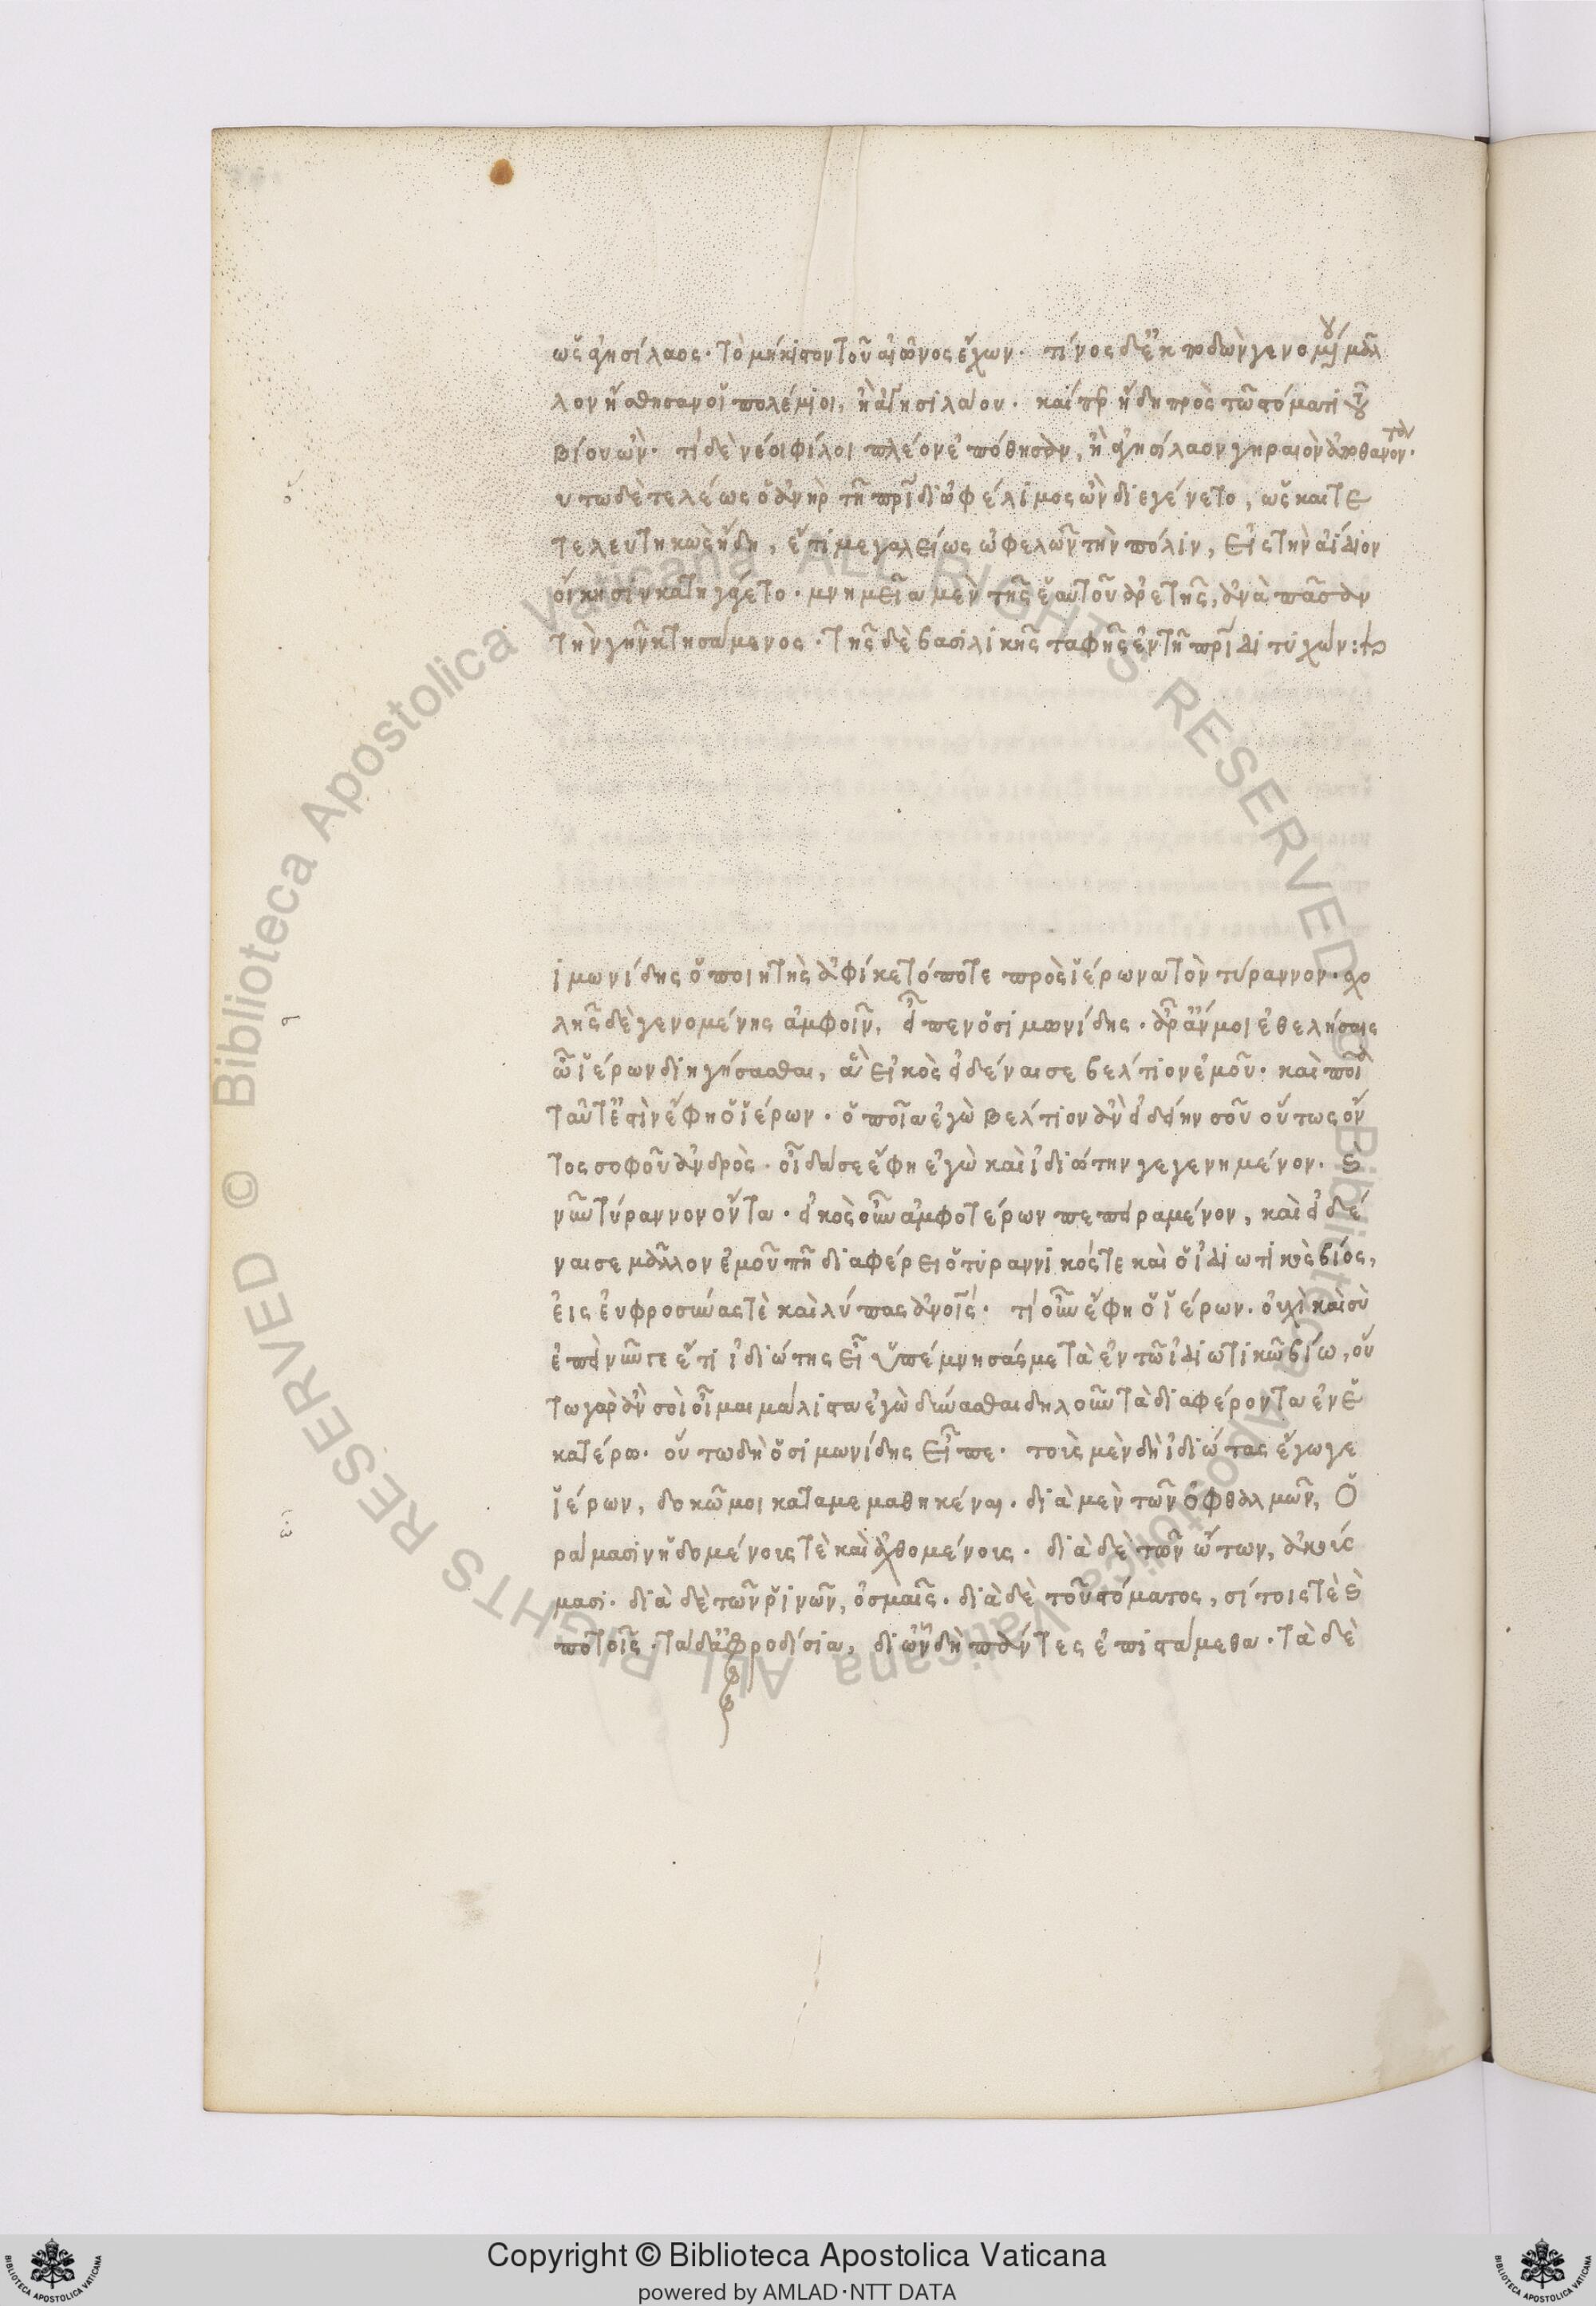 ὡς ἀγησίλαος· τὸ μήκιστον τοῦ αἰῶνος ἔχων· τίνος δ' ἐκποδὼν γενομένου μᾶλ
λον ἥσθησαν οἱ πολέμιοι, ἢ ἀγησιλάου· καίπερ ἤδη πρὸς τῷ στόματι τοῦ
βίου ὢν· τί δὲ νέοι φίλοι πλέον ἐπόθησαν, ἢ ἀγησίλαον γηραιὸν ἀποθανόντα·
υτω δὲ τελέως ὁ ἀνὴρ τῇ πατρίδι ὠφέλιμος ὢν διεγένετο, ὡς καὶ τε
τελευτηκὼς ἤδη, ἔτι μεγαλείως ὠφελῶν τὴν πόλιν, εἰς τὴν ἀΐδιον
οἴκησιν κατηγάγετο· μνημεῖα μὲν τῆς ἑαυτοῦ ἀρετῆς, ἀνὰ πᾶσαν
τὴν γῆν κτησάμενος· τῆς δὲ βασιλικῆς ταφῆς ἐν τῇ πατρίδι τυχών:
ιμωνίδης ὁ ποιητὴς ἀφίκετό ποτε πρὸς ἱέρωνα τὸν τύραννον· σχο
λῆς δὲ γενομένης ἀμφοῖν, εἶπεν ὁ σιμωνίδης· ἆρ' ἄν μοι ἐθελήσαις
ὦ ἱέρων διηγήσασθαι, ἃ εἰκὸς εἰδέναι σε βέλτιον ἐμοῦ· καὶ ποῖα
ταῦτ' ἐστὶν ἔφη ὁ ἱέρων· ὁποῖα ἐγὼ βέλτιον ἂν εἰδείην σοῦ οὕτως ὄν
τος σοφοῦ ἀνδρὸς· οἶδά σε ἔφη ἐγὼ καὶ ἰδιώτην γεγενημένον· καὶ
νῦν τύραννον ὄντα· εἰκὸς οὖν ἀμφοτέρων πεπειραμένον, καὶ εἰδέ
ναι σε μᾶλλον ἐμοῦ πῇ διαφέρει ὁ τυραννικός τε καὶ ὁ ἰδιωτικὸς βίος,
εἰς εὐφροσύνας τὲ καὶ λύπας ἀνοῖς· τί οὖν ἔφη ὁ ἱέρων· οὐχὶ καὶ σὺ
ἐπεὶ νῦν γε ἔτι ἰδιώτης εἶ ὑπέμνησάς με τὰ ἐν τῷ ἰδιωτικῷ βίω, οὕ
τω γὰρ ἄν σοὶ οἶμαι μάλιστα ἐγὼ δύνασθαι δηλοῦν τὰ διαφέροντα ἐν ἑ
κατέρω· οὕτω δὴ ὁ σιμωνίδης εἶπε· τοὺς μὲν δὴ ἰδιώτας ἔγωγε
ἱέρων, δοκῶ μοι καταμεμαθηκέναι· διὰ μὲν τῶν ὀφθαλμῶν, ὁ
ράμασιν ἡδομένοις τὲ καὶ ἀχθομένοις· διὰ δὲ τῶν ὤτων, ἀκούς
μασι· διὰ δὲ τῶν ῥινῶν, ὀσμαῖς· διὰ δὲ τοῦ στόματος, σίτοις τὲ καὶ
ποτοῖς· τὰ δ' ἀφροδίσια, δι' ὧν δὴ πάντες ἐπιστάμεθα· τὰ δὲ
Copyright © Biblioteca Apostolica Vaticana
powered by AMLAD·NTT DATA